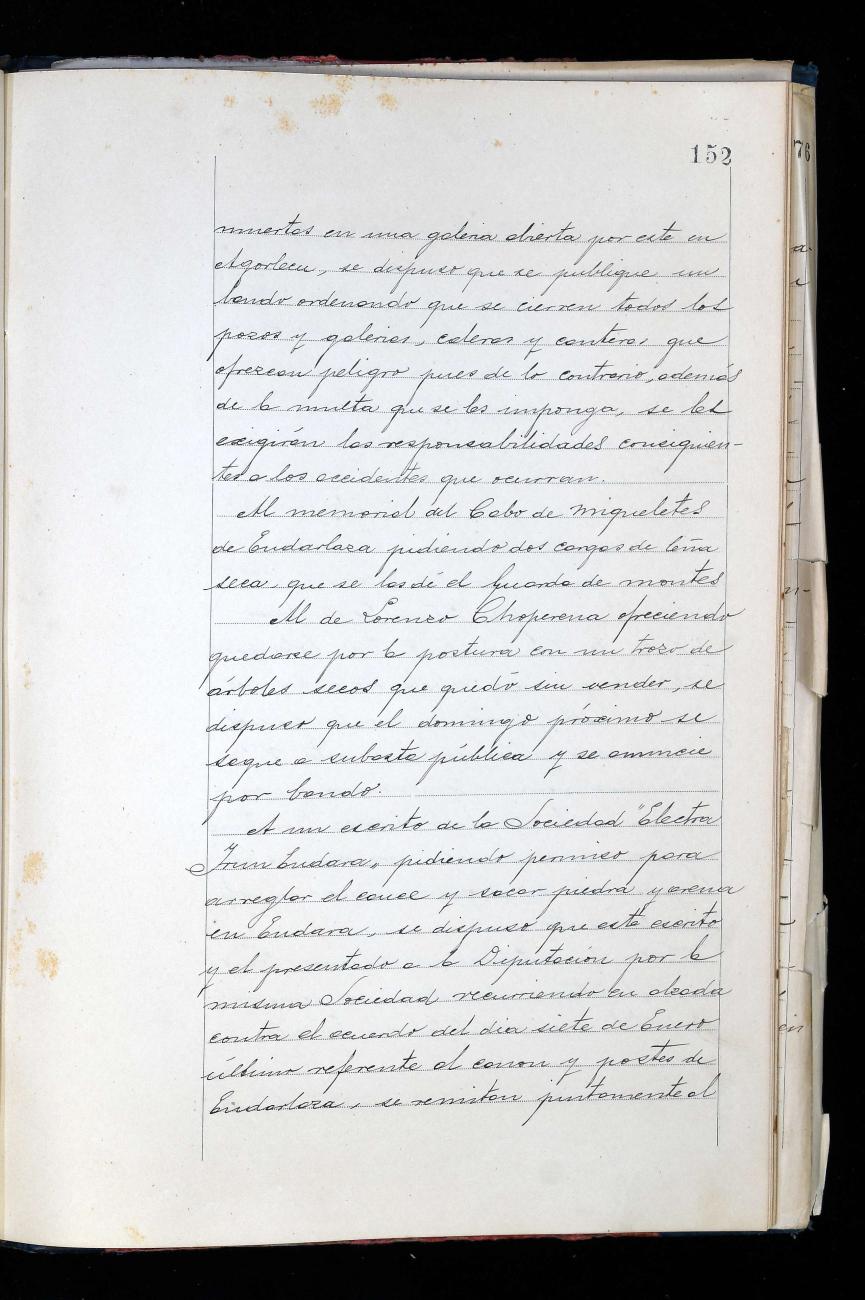 152
muertas en una galeria abierta por este en
Agorleen, se dispuso que se publique un
bando ordenando que se cierren todos los
pozos y galerias, caleras y canteras que
ofrezcan peligro pues de lo contrario, además
de la multa que se les imponga, se les
exigirán las responsabilidades consiguien-
tes a los accidentes que ocurran.
Al memorial del Cabo de Miqueletes
de Endarlaza pidiendo dos cargas de leña
seca, que se las dé el Guarda de montes
Al de Lorenzo Choperena ofreciendo
quedarse por la postura con un trozo de
árboles secos que quedó sin vender, se
dispuso que el domingo próximo se
saque a subasta pública y se anuncie
por bando.
A un escrito de la Sociedad "Electra
Irun Endara" pidiendo permiso para
arreglar el cauce y sacar piedra y arena
en Endara, se dispuso que este escrito
y el presentado a la Diputación por la
misma Sociedad recurriendo en alzada
contra el acuerdo del dia siete de Enero
último referente al canon y postes de
Endarlaza, se remitan juntamente al
76